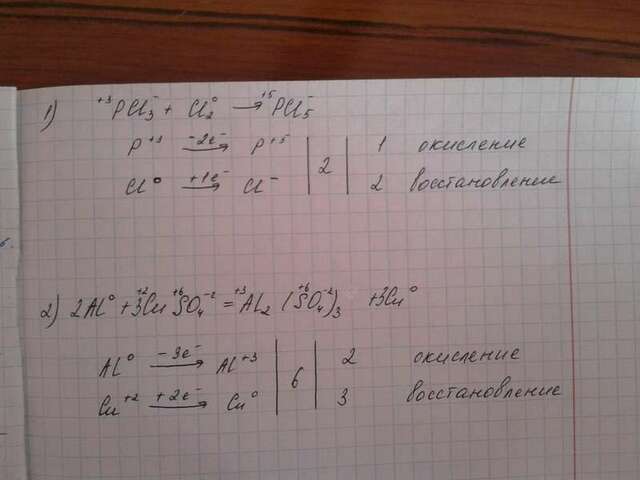 1) +3PCl3- + Cl2° → +5PCl5-
P+3 -2e-→ P+5 | 2 | 1 окисление
Cl° +1e-→ Cl- | | 2 восстановление
2) 2Al° + 3Cu+2S+6O4-2 = Al2+3(S+6O4-2)3 + 3Cu°
Al° -3e-→ Al+3 | 6 | 2 окисление
Cu+2 +2e-→ Cu° | | 3 восстановление